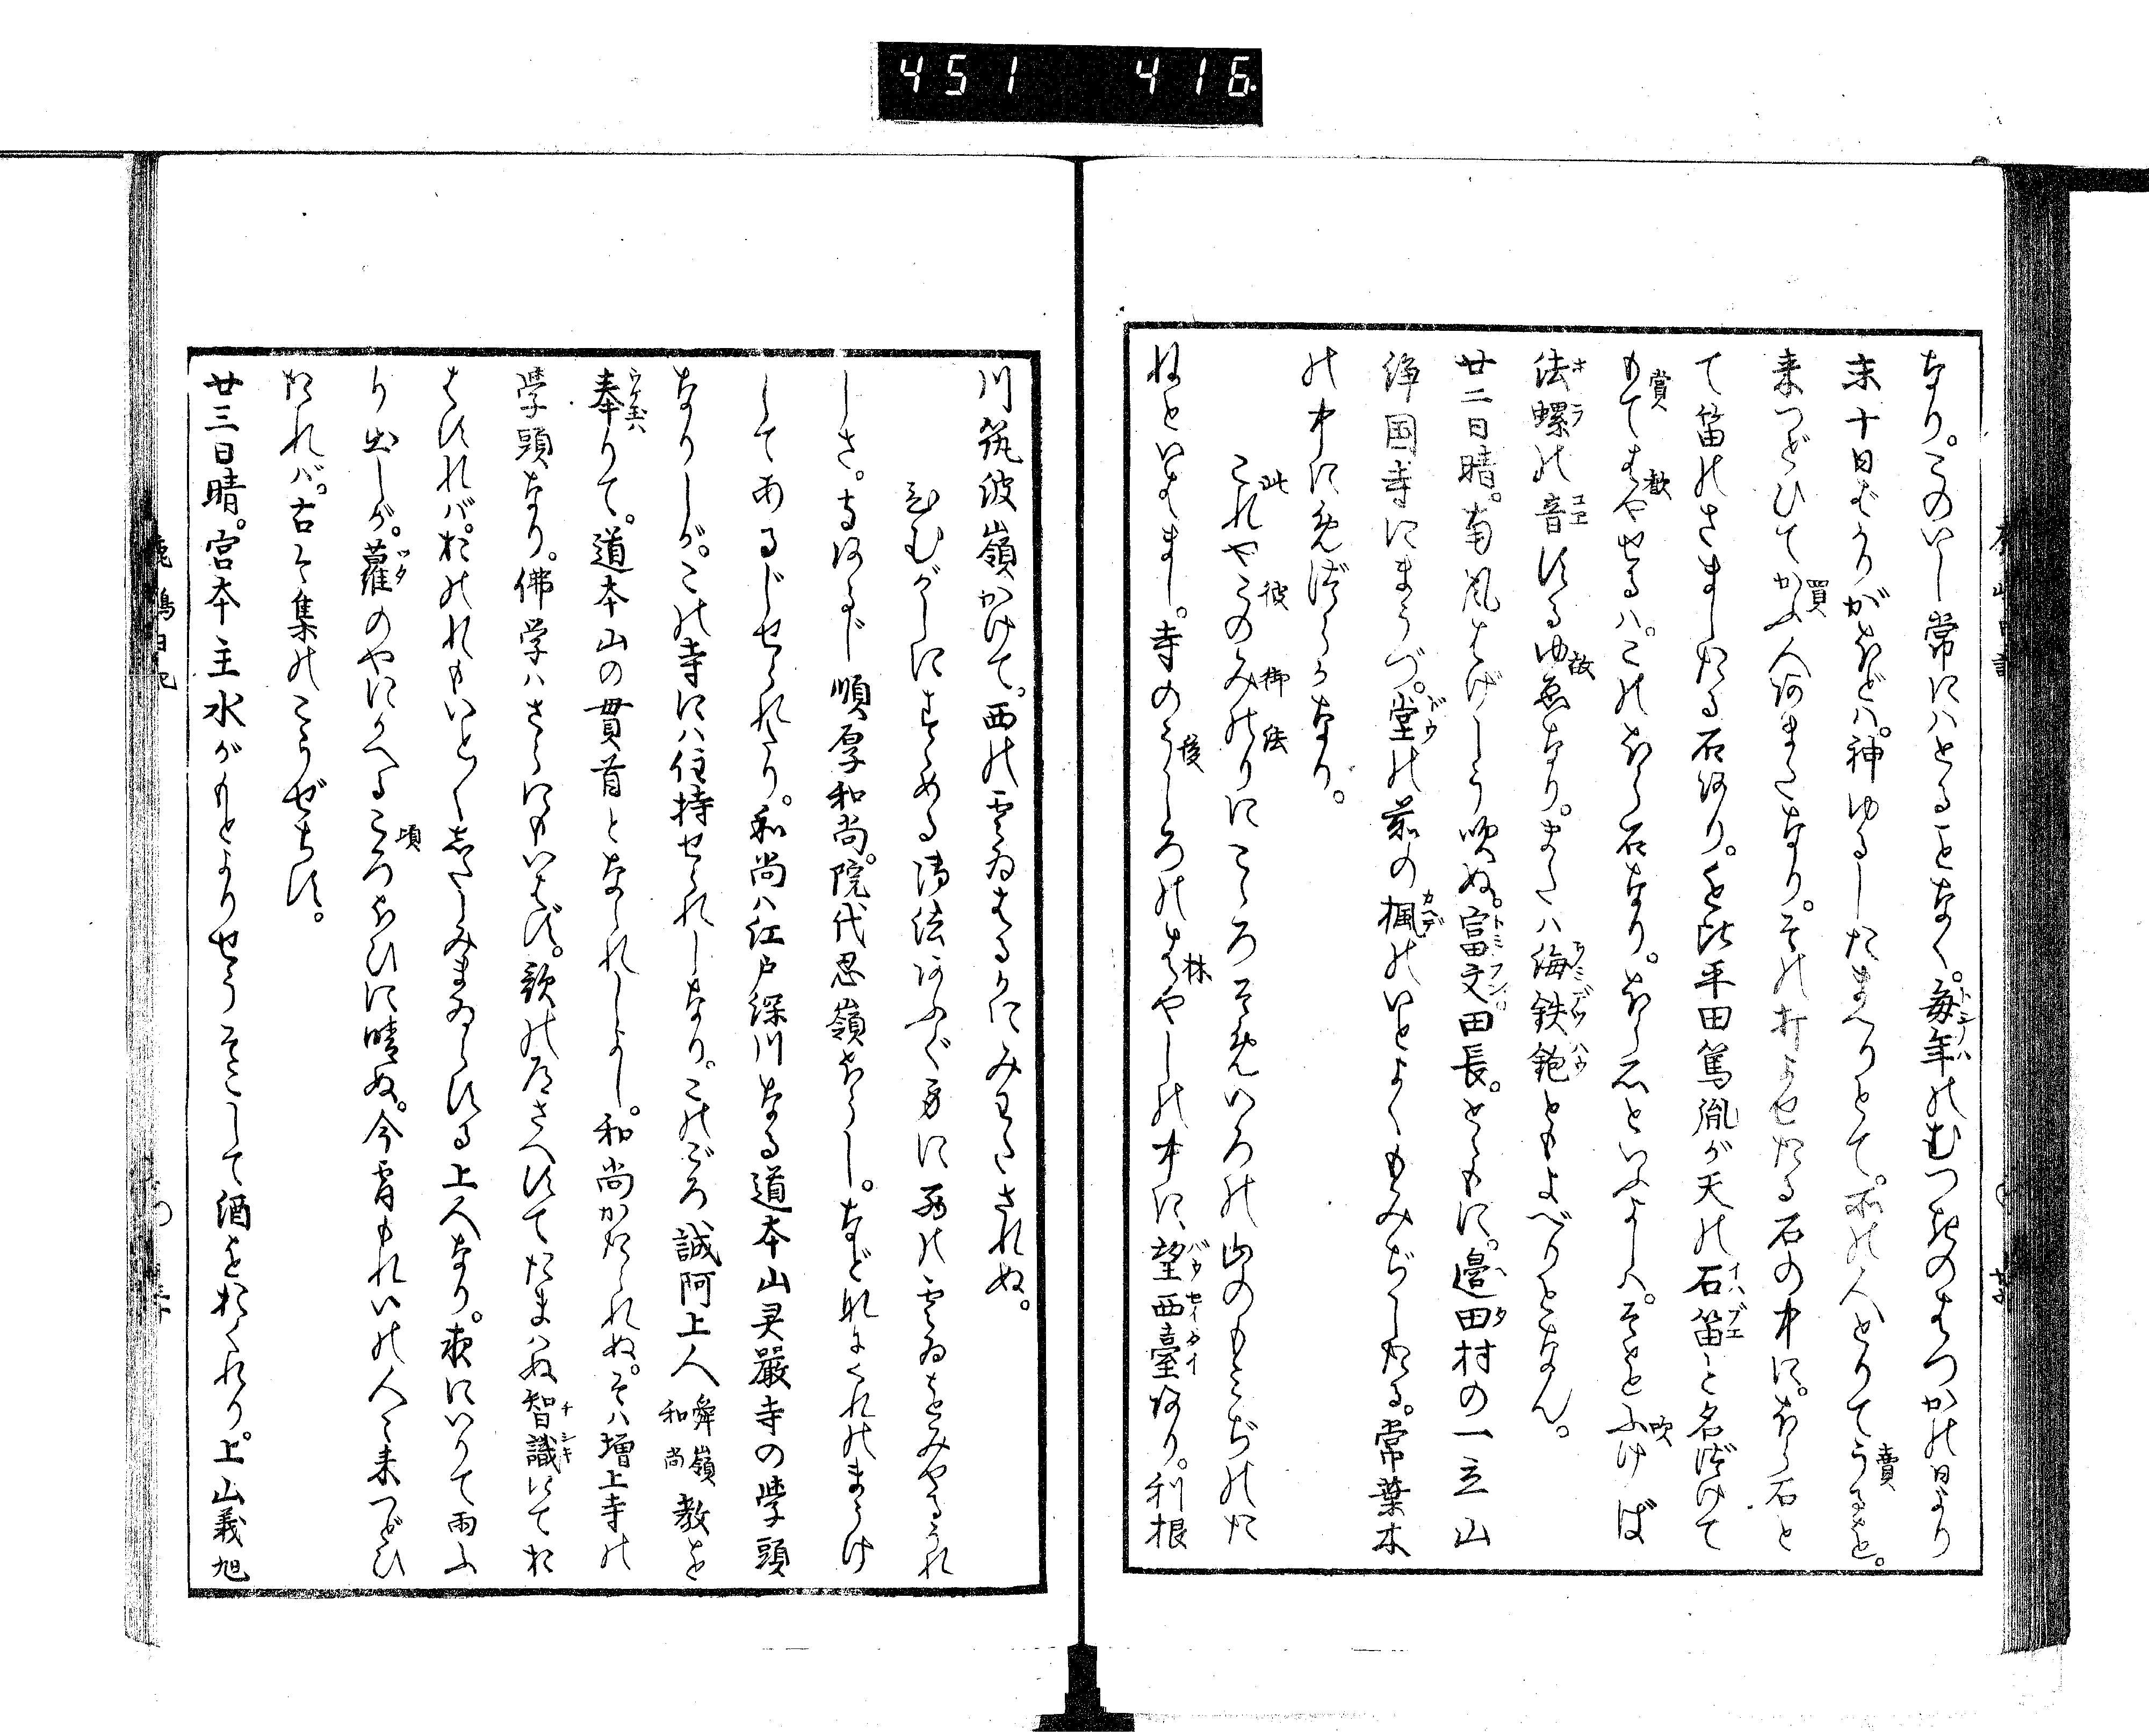 451 416
なり。このいし常にハとることなく。毎年のむつきのはつかの日より
末十日ばかりがほどハ。神ゆるしたまへりとて。所の人とりてうるを。
来つどひてかふ人あまたなり。その打よせたる石の中に。ほら石と
て笛のさましたる石あり。を平田篤胤が天の石笛と名づけて
もてはやせるハ。このほら石なり。ほら石といふよしハ。そをふけば
法螺の音するゆゑなり。またハ海鉄炮ともよべりとなん。
廿二日晴。南風はげしう吹ぬ。富文田長。とともに。邉田村の一立山
浄国寺にまうづ。堂の前の楓のいとよくもみぢしたる。常葉木
の中にめづらかなり。
これやこのみのりにこころそめいろの山のもみぢのた
ねといはまし。寺のうしろのはやしの中に、望西臺あり。利根
川筑波嶺かけて。西の雲ゐはるかにみわたされぬ。
ひむがしにすゝめる御法あふぐ身に西の雲ゐをみやるうれ
しさ。あるじ順厚和尚。院代忍嶺ほうし。などねもころのまうけ
してあるじせられたり。和尚ハ江戸深川なる道本山灵嚴寺の学頭
なりしが。この寺にハ住持せられしなり。このごろ誠阿上人舜嶺和尚教を
奉りて。道本山の貫首となられしよし。和尚かたられぬ。そハ増上寺の
学頭なり。佛学ハさらにもいはず。歌の道さへすてたまハぬ智識にてお
はすれバ。おのれもいと〳〵したしみまゐらする上人なり。夜にいりて雨ふ
り出しが。蘿のやにかへるころほひに晴ぬ。今宵もれいの人々来つどひ
たれバ。古今集のこうぜちす。
廿三日晴。宮本主水がもとよりせうそこして酒をおくれり。上山義旭